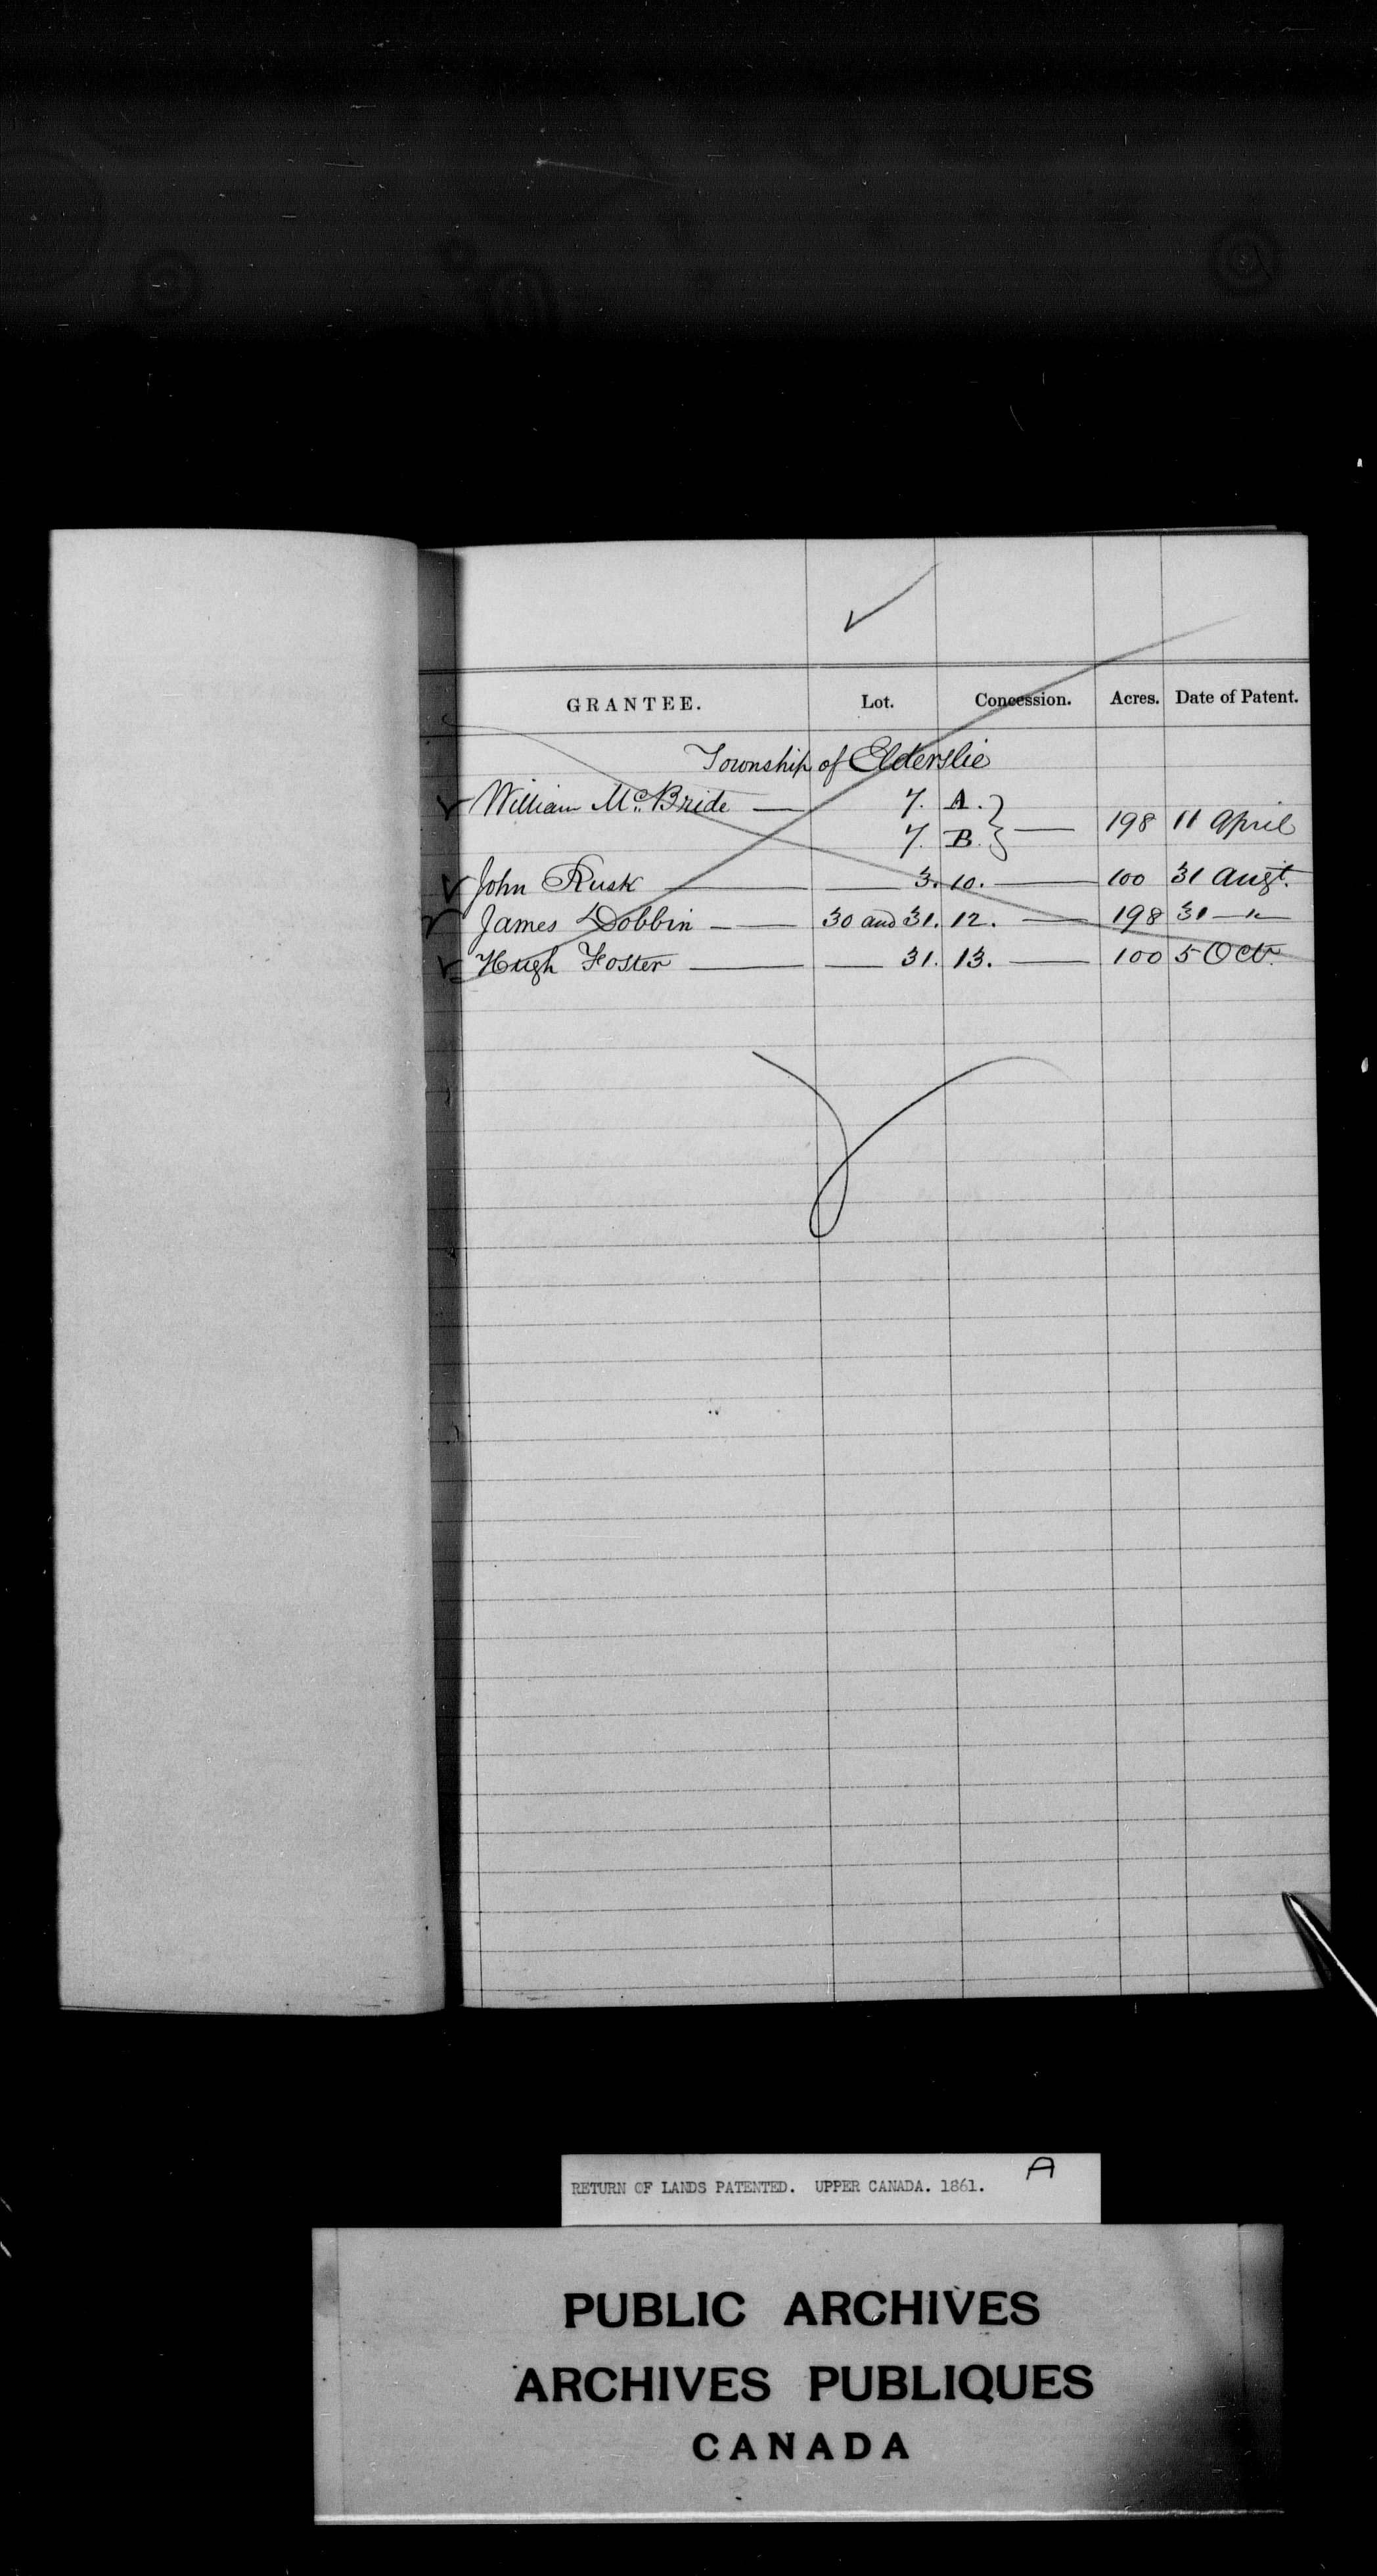 GRANTEE. Lot. Concession. Acres. Date of Patent.
Township of Elderslie
William Mc.Bride — 7. A.
7. B. } — 198 11 April
John Rusk — — 3. 10. — 100 31 Augt.
James Dobbin — — 30 and 31. 12. — 198 31 —"—
Hugh Foster — — 31. 13. — 100 5 Oct.
A
RETURN OF LANDS PATENTED. UPPER CANADA. 1861.
PUBLIC ARCHIVES
ARCHIVES PUBLIQUES
CANADA